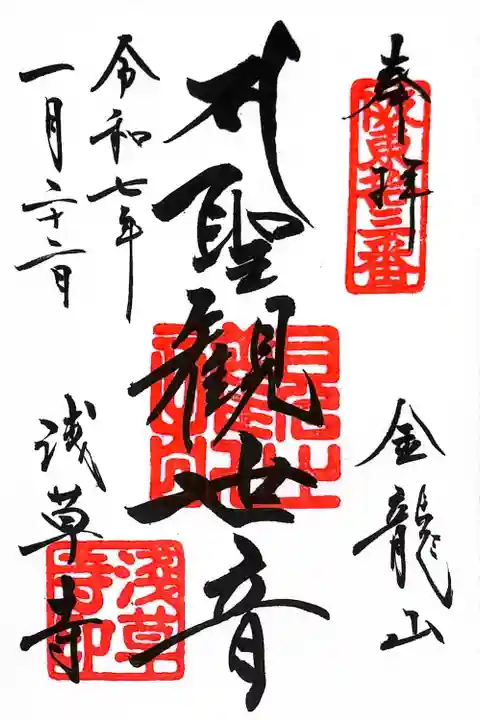 奉拝
坂東拾三番
金龍山
聖観世音
令和七年
一月二十二日
浅草寺
淺草寺印